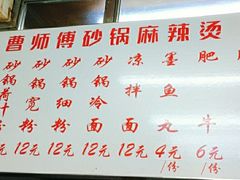 曹师傅砂锅麻辣烫
砂锅
元
砂锅宽粉
12元
砂锅细粉
12元
砂锅冷面
12元
凉拌面
12元
墨鱼丸
4元/份
肥牛
6元/份